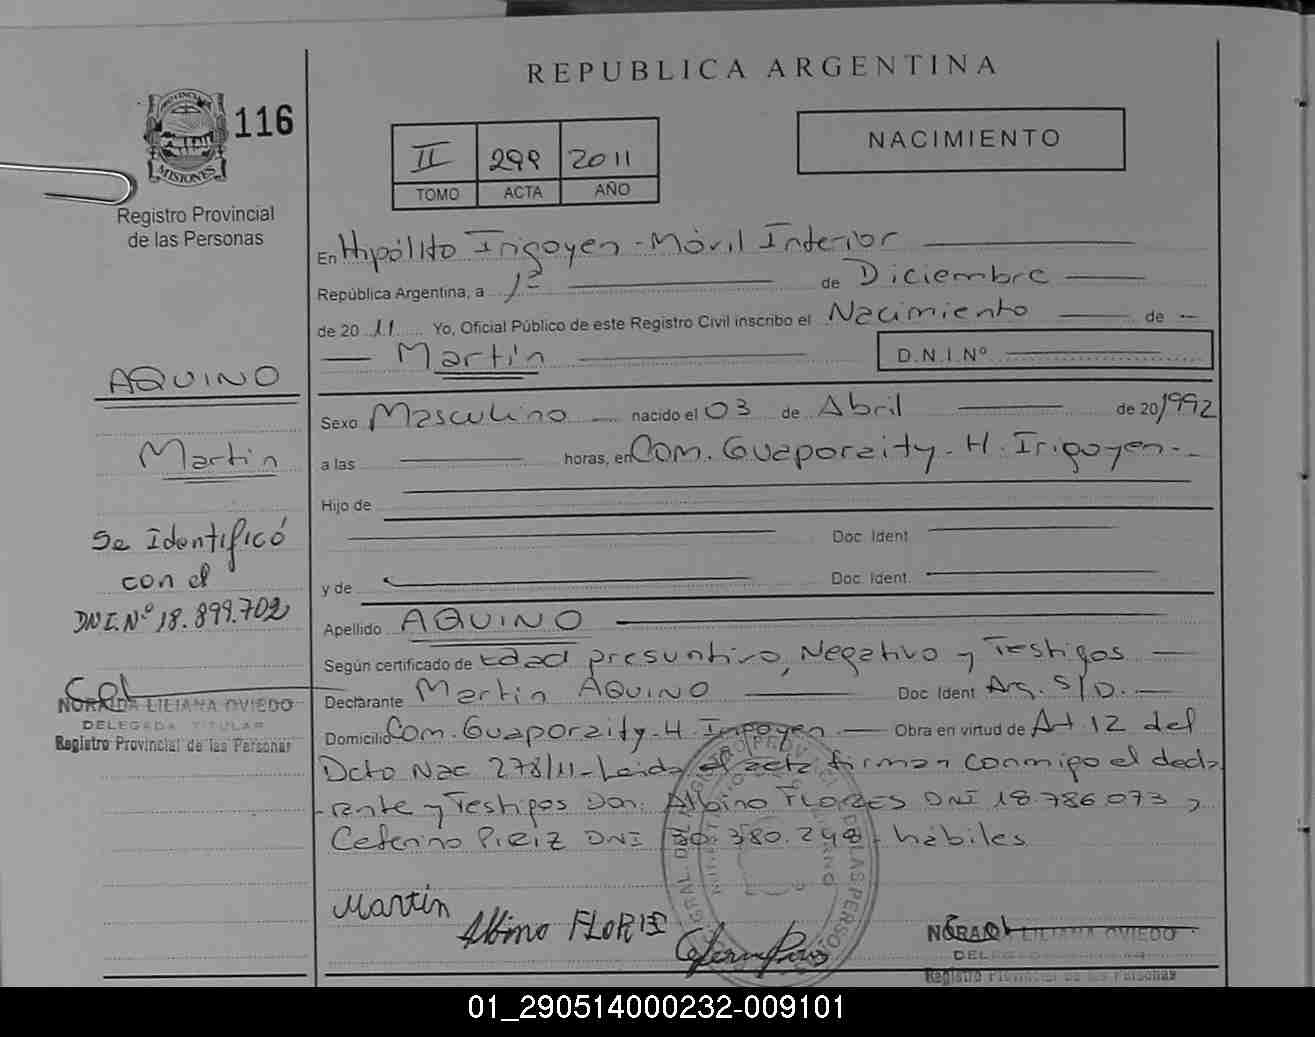 REPUBLICA ARGENTINA
PROVINCIA
MISIONES
116
Registro Provincial
de las Personas
II 299 2011
TOMO ACTA AÑO
NACIMIENTO
En Hipólito Irigoyen - Móvil Interior
República Argentina, a 1º de Diciembre
de 20 11 Yo, Oficial Público de este Registro Civil inscribo el Nacimiento de
Martin D.N.I.Nº
AQUINO
Martin
Se Identificó
con el
DNI. Nº 18.899.702
NORAIDA LILIANA OVIEDO
DELEGADA TITULAR
Registro Provincial de las Personas
Sexo Masculino nacido el 03 de Abril de 20/1992
a las horas, en Com. Guaporaity - H. Irigoyen -
Hijo de
Doc. Ident
y de Doc. Ident.
Apellido AQUINO
Según certificado de Edad presuntiva, Negativo y Testigos
Declarante Martin AQUINO Doc Ident Arg. S/D.
Domicilio Com. Guaporaity - H. Irigoyen Obra en virtud de Art 12 del
Dcto Nac 278/11 - Leida el acta firman conmigo el decla
rante y Testigos Don: Albino FLORES DNI 18.786.073 y
Ceferino PIRIZ DNI 30.380.298 - hábiles
Martín
Albino FLORES
NORAIDA LILIANA OVIEDO
DELEGADA
Registro Provincial de las Personas
01_290514000232-009101